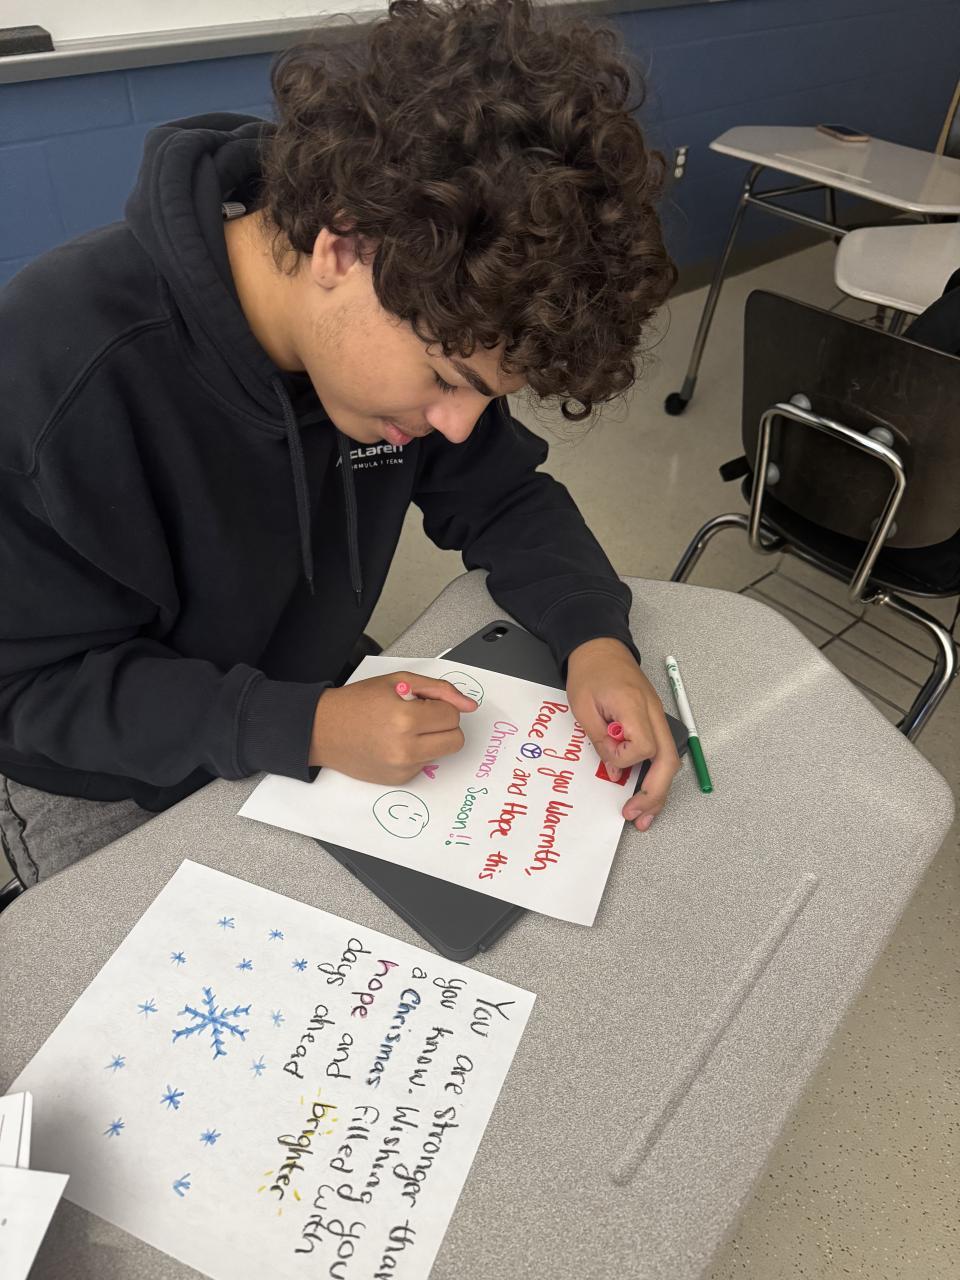 McLaren
FORMULA 1 TEAM
you Warmth,
Peace, and Hope this
Chrismas Season!!
You are stronger than
you know. Wishing you
a chrismas filled with
hope and brighter
days ahead